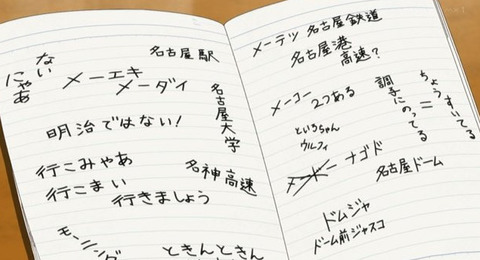 ない
にゃあ
名古屋駅
メーエキ
メーダイ
名古屋大学
明治ではない!
行こみゃあ
行こまい
行きましょう
名神高速
モーニング
ときんときん
メーテツ 名古屋鉄道
名古屋港
高速?
メーコー 2つある
ちょうすいてる
=
調子にのってる
といろちゃん
ウルフィ
ナゴド
名古屋ドーム
ドムジャ
ドーム前ジャスコ